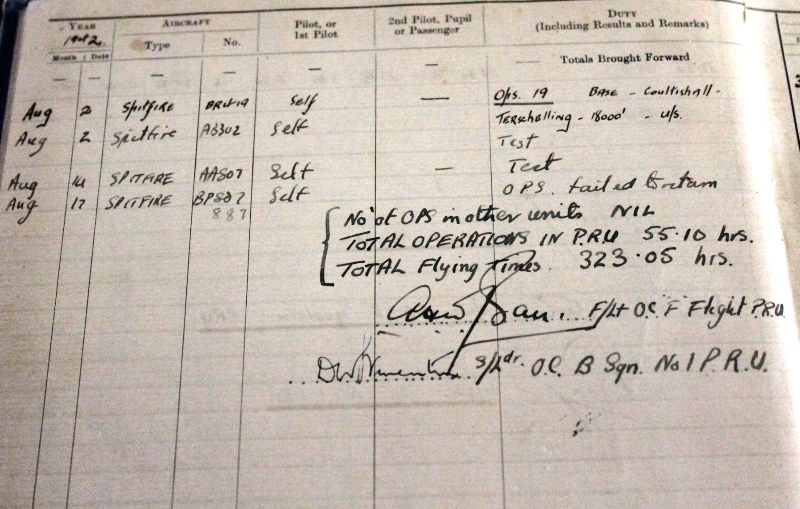 YEAR AIRCRAFT Pilot, or 1st Pilot 2nd Pilot, Pupil or Passenger DUTY (Including Results and Remarks)
1942
Month Date Type No.
— — — — — — Totals Brought Forward
Aug 2 Spitfire Self — Ops. 19 BASE - Coultishall -
TERSCHELLING - 18000' - u/s.
Aug 2 Spitfire AB302 Self Test
Aug 14 SPITFIRE AA807 Self — Test
Aug 17 SPITFIRE BP887 Self OPS. failed to return
887
No' of OPS in other units NIL
TOTAL OPERATIONS IN P.R.U 55.10 hrs.
TOTAL Flying Times. 323.05 hrs.
F/Lt O.C. F Flight P.R.U.
S/Ldr. O.C. B Sqn. No 1 P.R.U.